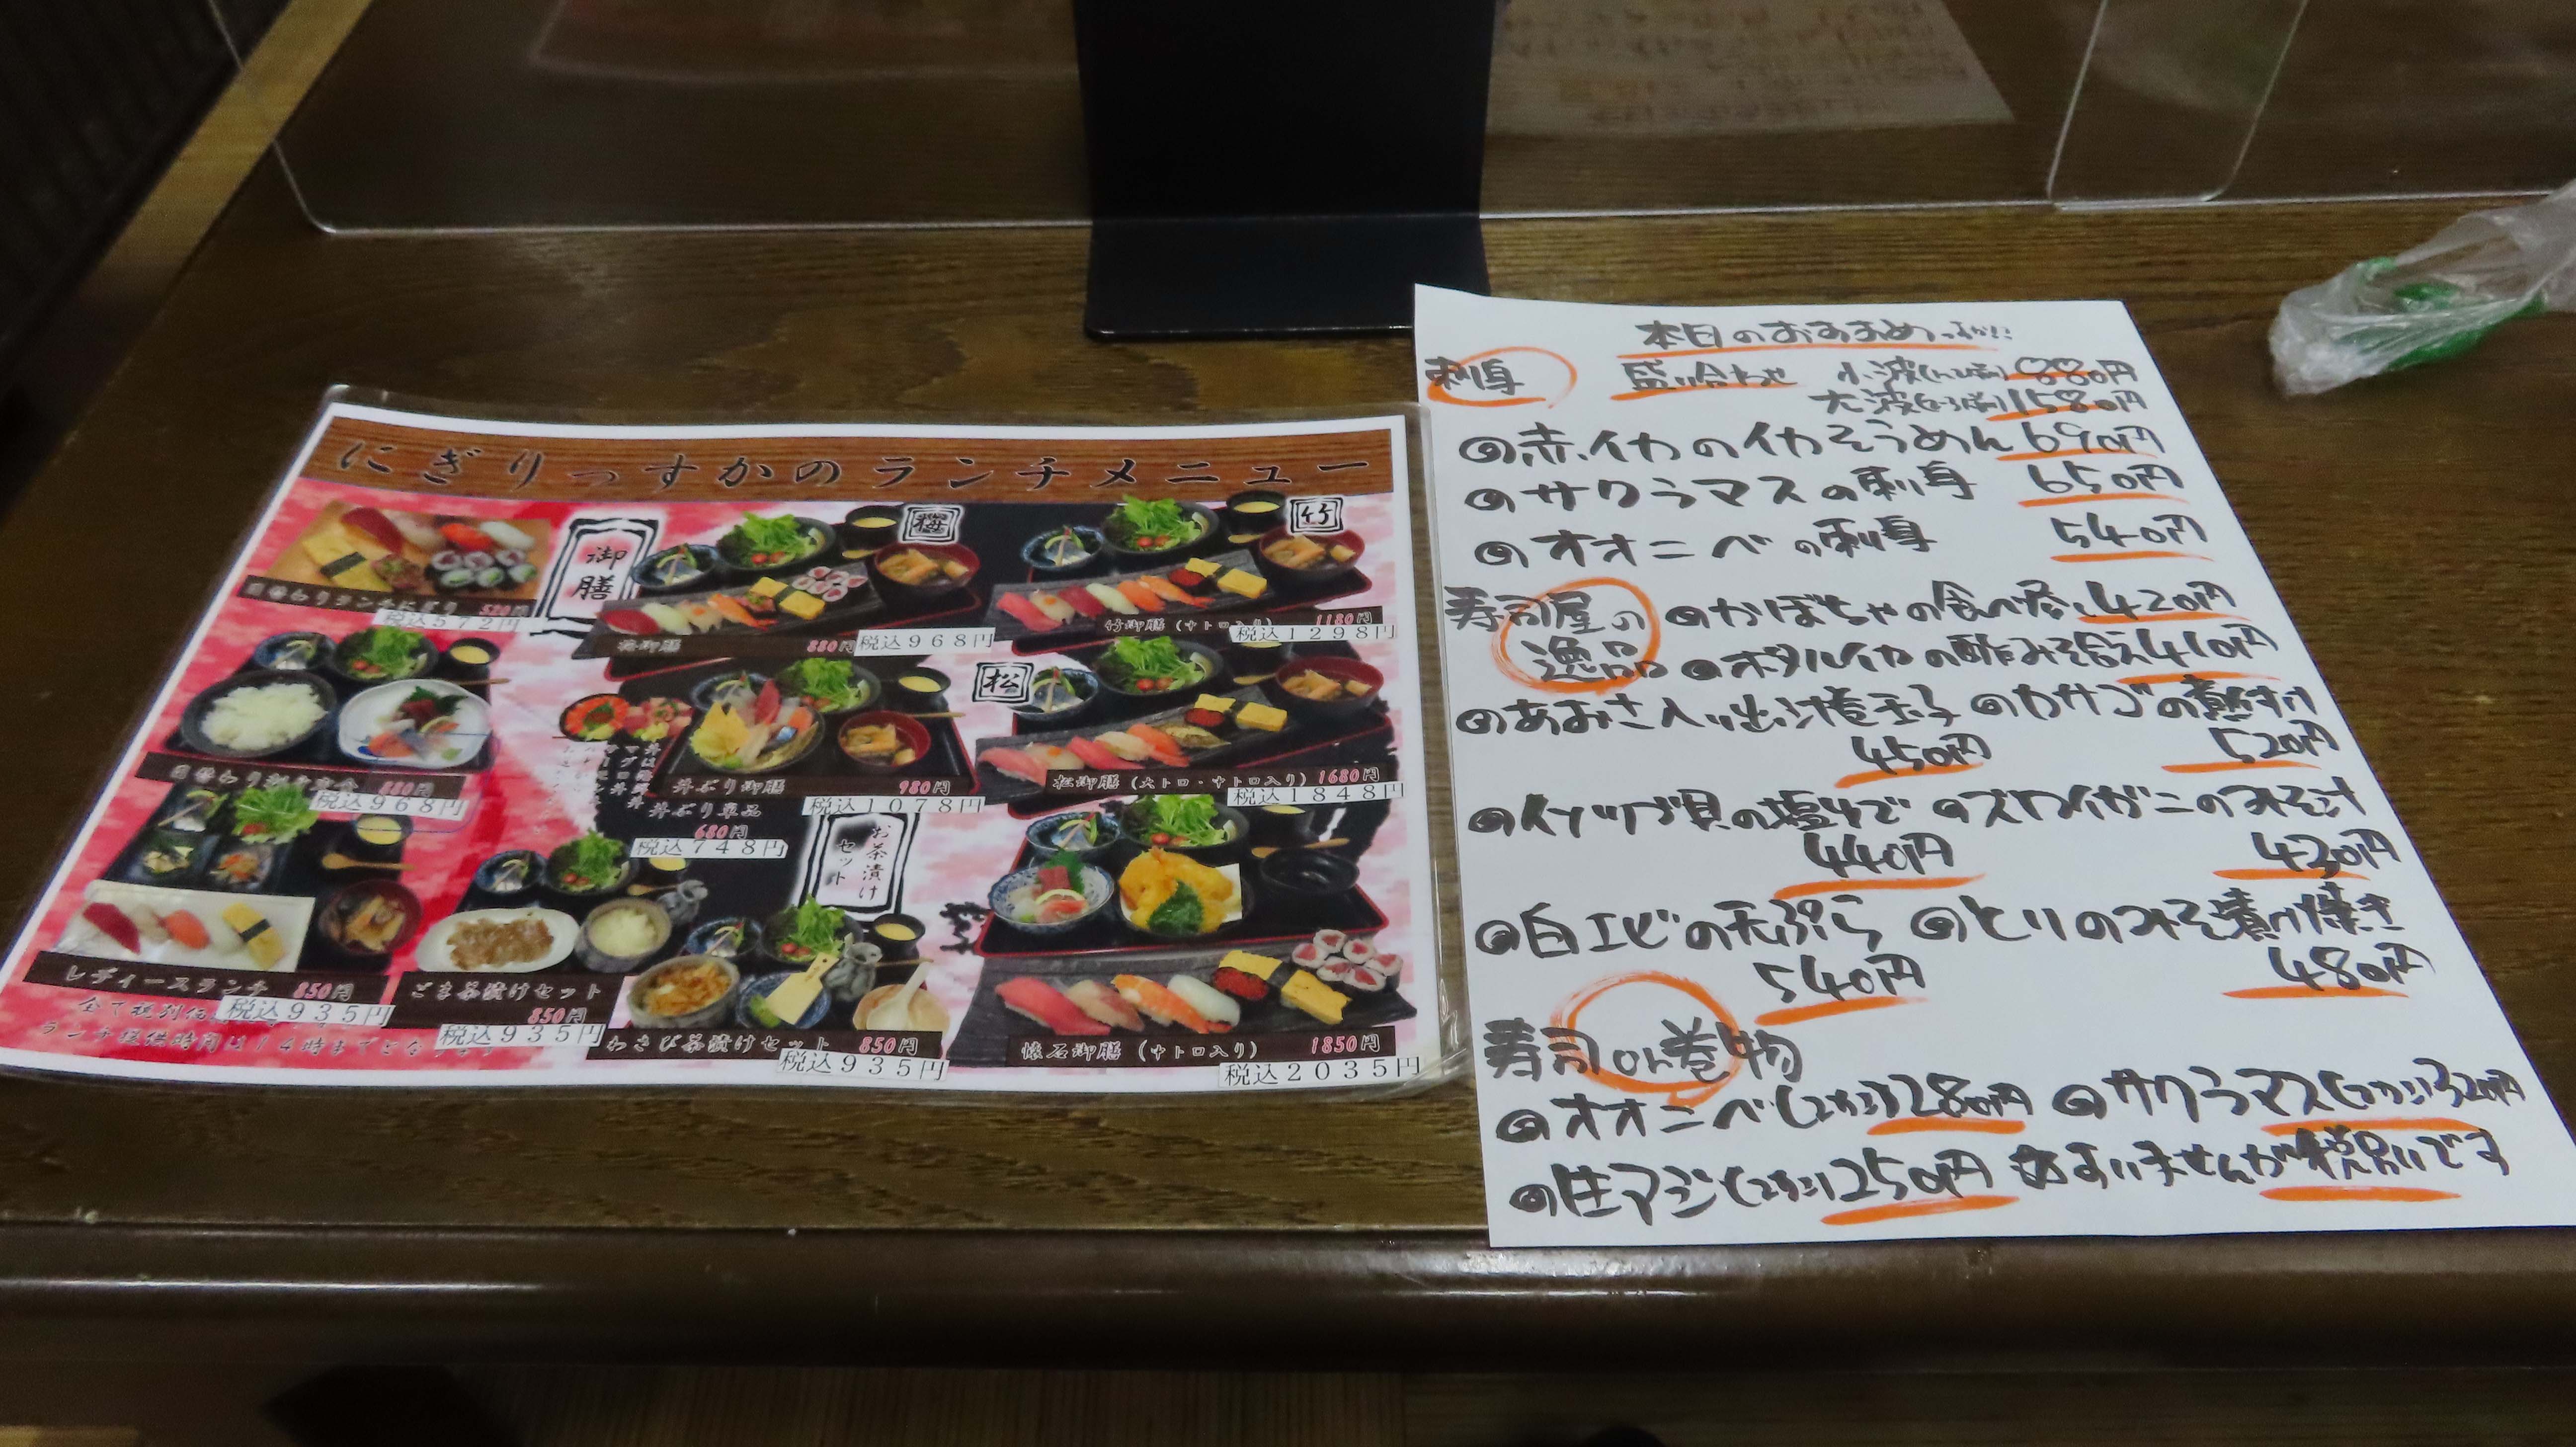 にぎりっすかのランチメニュー
日替わりランチにぎり 520円
税込572円
御膳
梅
梅御膳 880円
税込968円
竹
竹御膳 (中トロ入り) 1180円
税込1298円
日替わり刺身定食 880円
税込968円
丼ぶり御膳 980円
税込1078円
丼ぶり単品
680円
税込748円
松
松御膳 (大トロ・中トロ入り) 1680円
税込1848円
レディースランチ 850円
税込935円
お茶漬け
セット
ごま茶漬けセット
850円
税込935円
わさび茶漬けセット 850円
税込935円
懐石御膳 (中トロ入り) 1850円
税込2035円
全て税別
ランチ提供時間は14時までとな
本日のおすすめっすか!!
刺身 盛り合わせ 小波 880円
大波 1580円
赤イカのイカそうめん 690円
サクラマスの刺身 650円
オオニベの刺身 540円
寿司屋の逸品
かぼちゃの 420円
ホタルイカの酢みそ合え 410円
あおさ入り出汁巻玉子 450円
カサゴの煮付け 520円
イソツブ貝の塩ゆで 440円
ズワイガニのみそ汁 430円
白エビの天ぷら 540円
とりのみそ漬け焼き 480円
寿司or巻物
オオニベ(2カン) 280円
サクラマス(2カン) 320円
生アジ(2カン) 250円
すいませんが税別いです